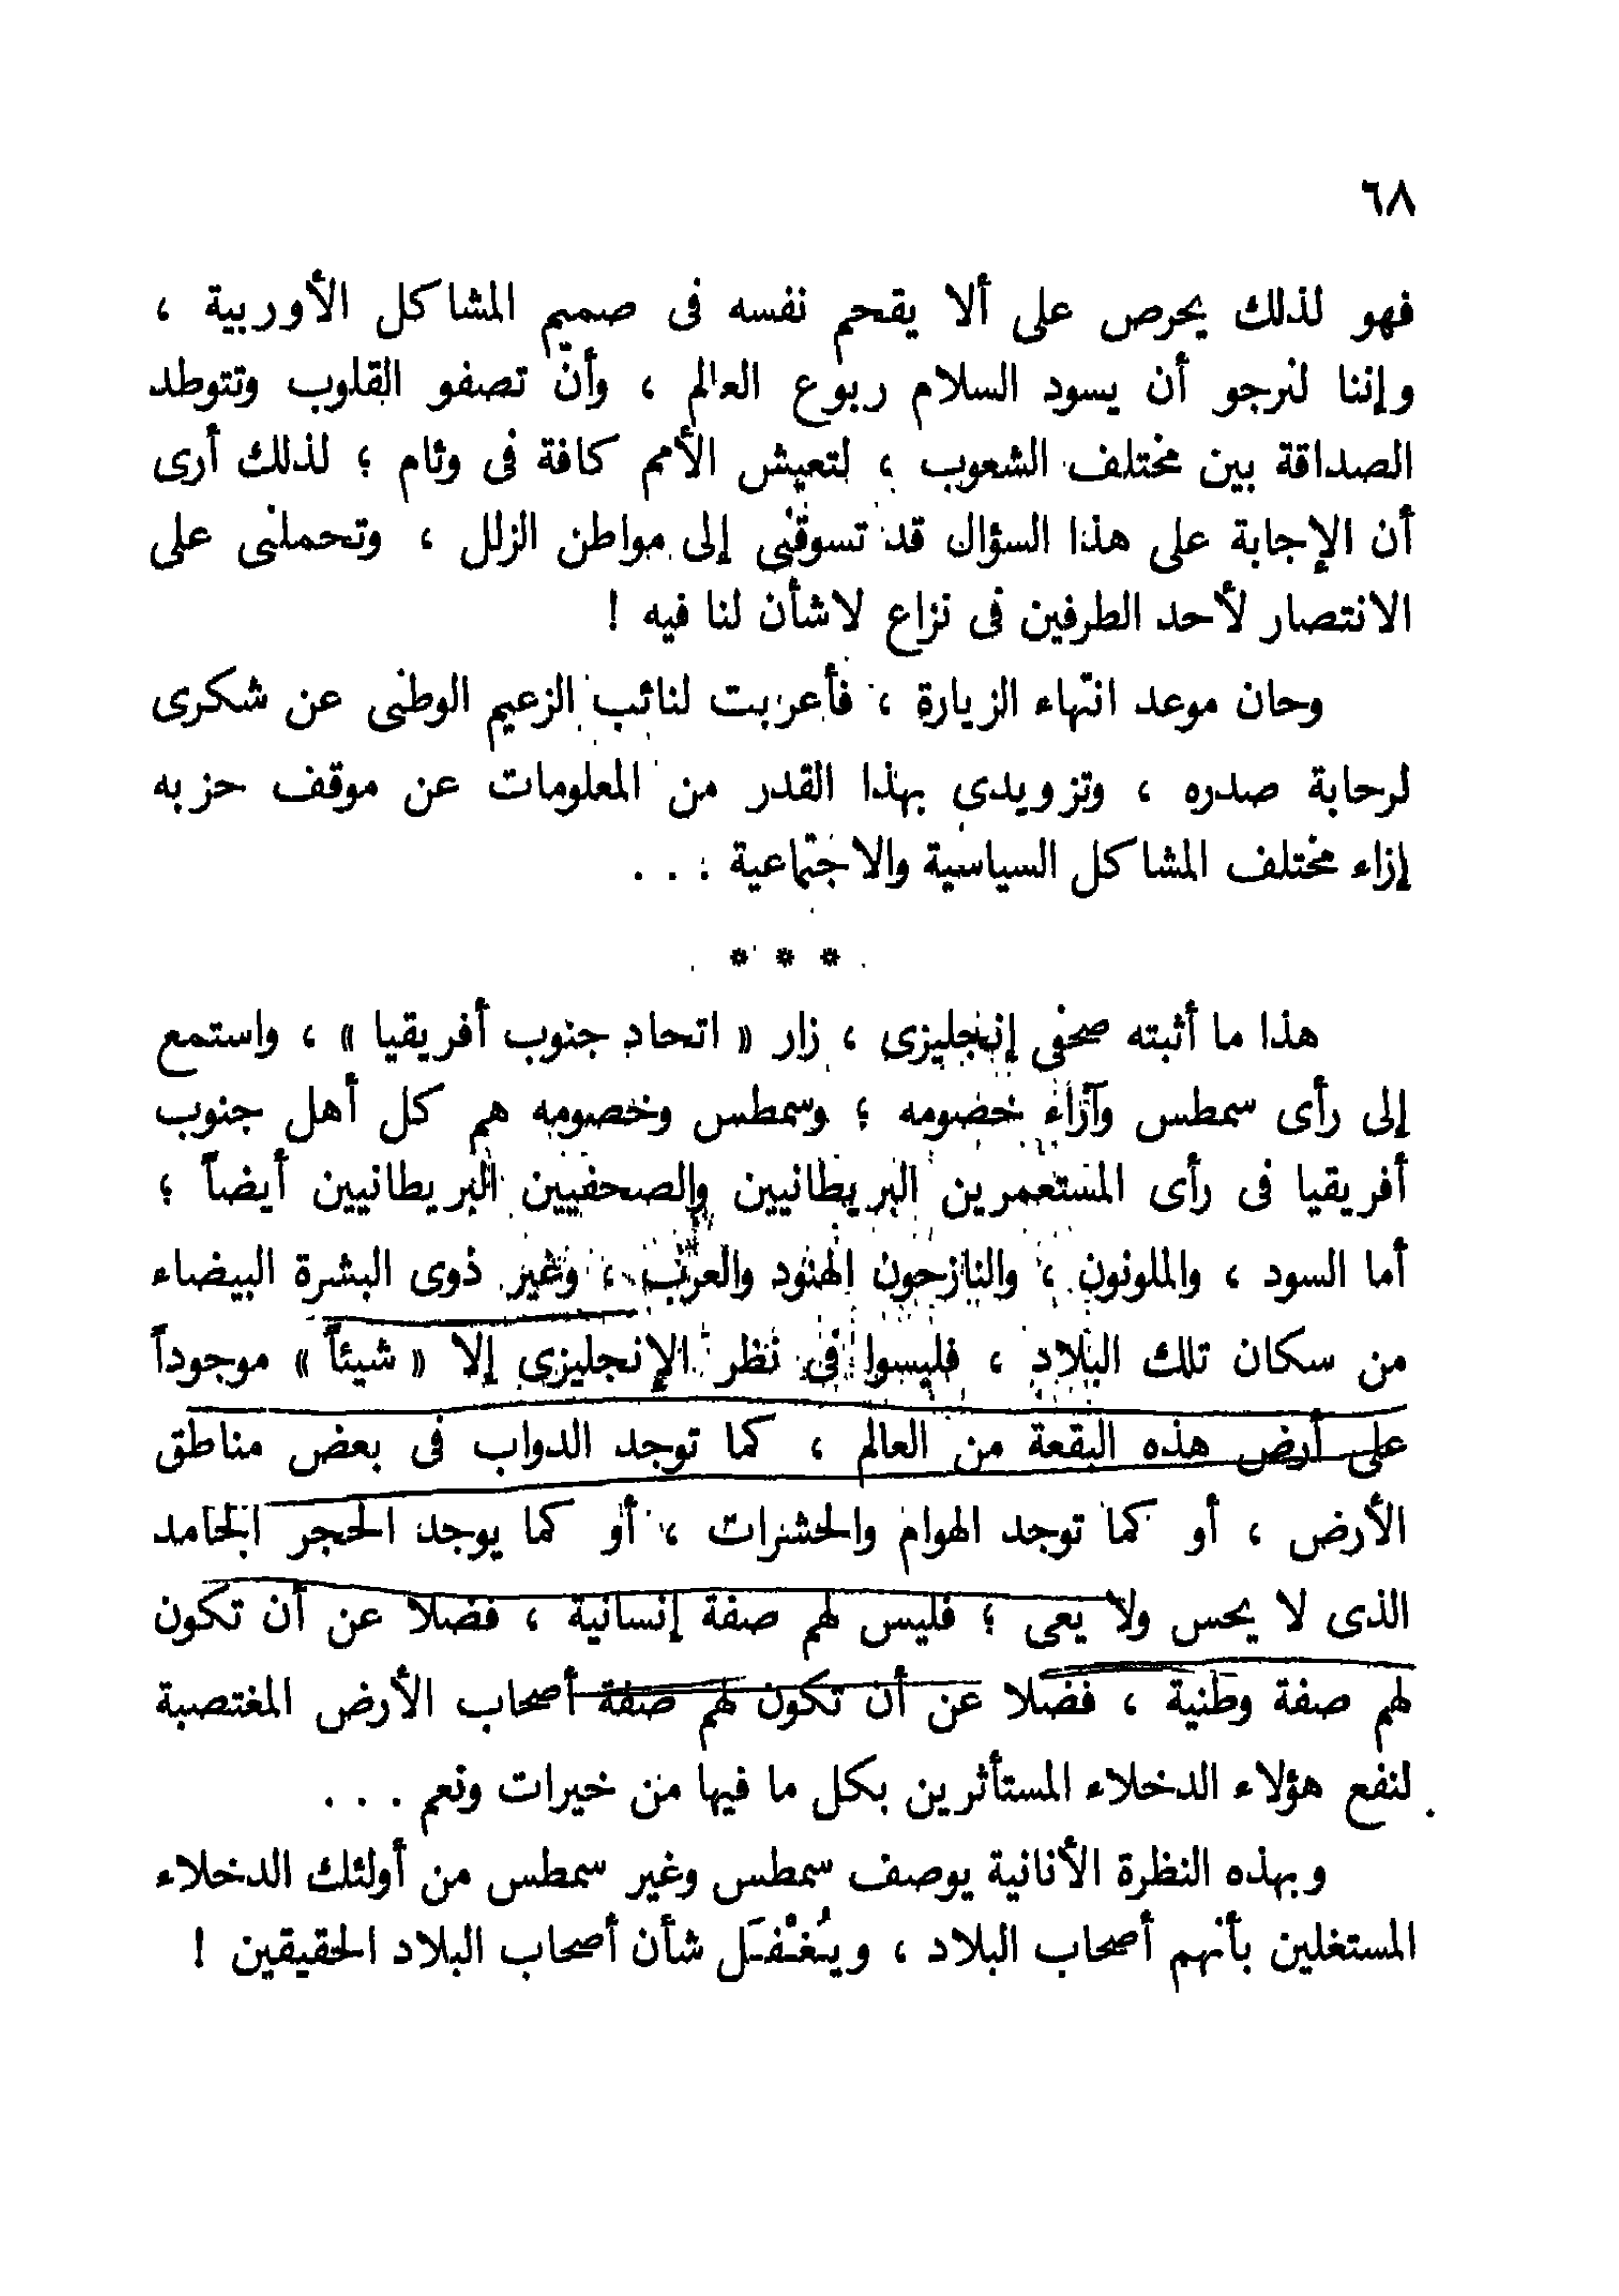 ٦٨
فهو لذلك يحرص على ألا يقحم نفسه فى صميم المشاكل الأوربية ،
وإننا لنرجو أن يسود السلام ربوع العالم ، وأن تصفو القلوب وتتوطد
الصداقة بين مختلف الشعوب ، لتعيش الأمم كافة فى وئام ؛ لذلك أرى
أن الإجابة على هذا السؤال قد تسوقنى إلى مواطن الزلل ، وتحملنى على
الانتصار لأحد الطرفين فى نزاع لاشأن لنا فيه !
وحان موعد انتهاء الزيارة ، فأعربت لنائب الزعيم الوطنى عن شكرى
لرحابة صدره ، وتزويدى بهذا القدر من المعلومات عن موقف حزبه
إزاء مختلف المشاكل السياسية والاجتماعية . . .
* * *
هذا ما أثبته صحفى إنجليزى ، زار « اتحاد جنوب أفريقيا » ، واستمع
إلى رأى سمطس وآراء خصومه ؛ وسمطس وخصومه هم كل أهل جنوب
أفريقيا فى رأى المستعمرين البريطانيين والصحفيين البريطانيين أيضاً ؛
أما السود ، والملونون ، والنازحون الهنود والعرب ، وغير ذوى البشرة البيضاء
من سكان تلك البلاد ، فليسوا فى نظر الإنجليزى إلا « شيئاً » موجوداً
على أرض هذه البقعة من العالم ، كما توجد الدواب فى بعض مناطق
الأرض ، أو كما توجد الهوام والحشرات ، أو كما يوجد الحجر الجامد
الذى لا يحس ولا يعى ؛ فليس لهم صفة إنسانية ، فضلا عن أن تكون
لهم صفة وطنية ، فضلا عن أن تكون لهم صفة أصحاب الأرض المغتصبة
لنفع هؤلاء الدخلاء المستأثرين بكل ما فيها من خيرات ونعم . . .
وبهذه النظرة الأنانية يوصف سمطس وغير سمطس من أولئك الدخلاء
المستغلين بأنهم أصحاب البلاد ، ويُغْفَل شأن أصحاب البلاد الحقيقين !